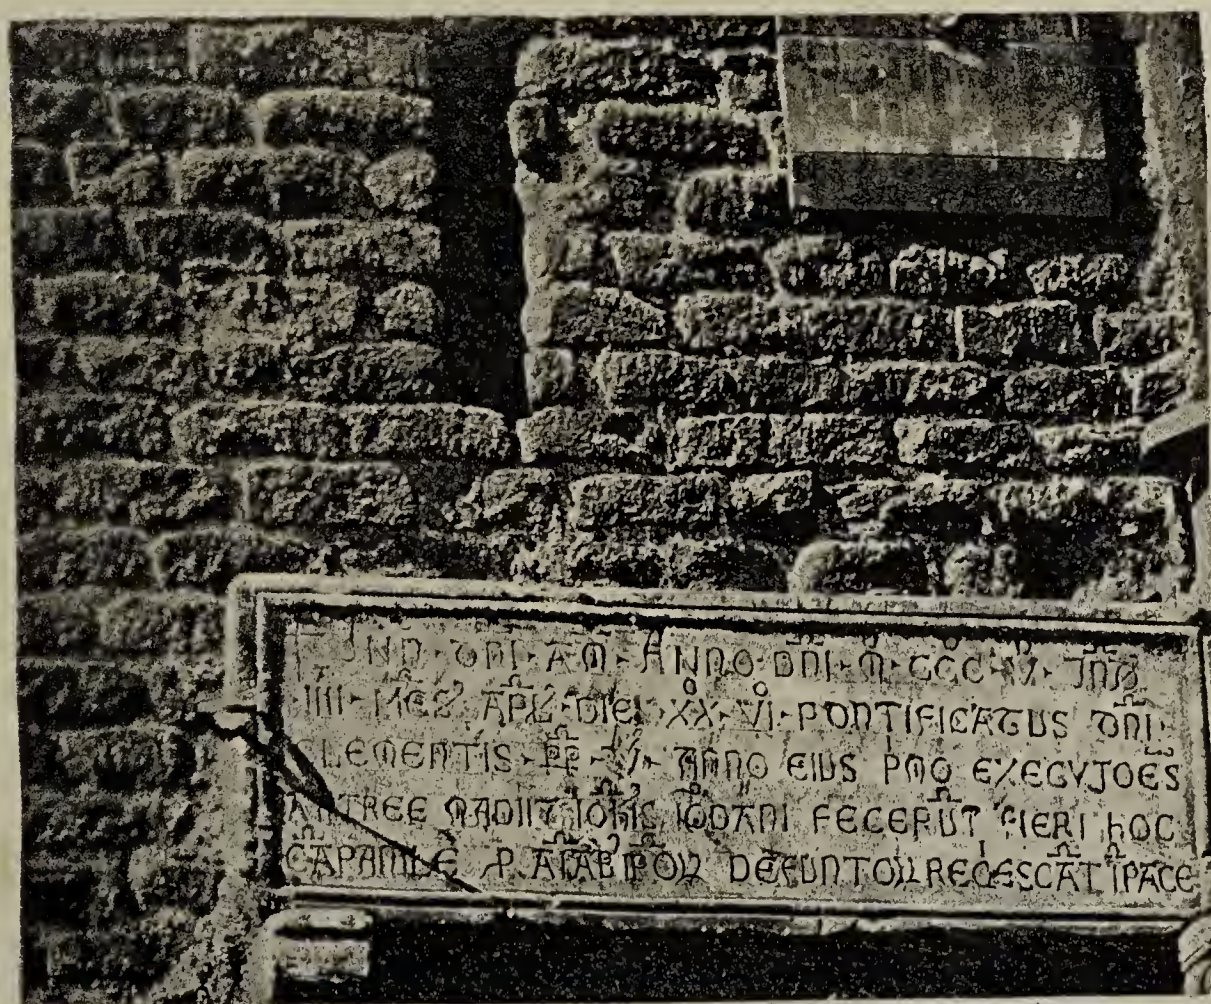 INN · DNI · AM · ANNO · DNI · M · CCC · V · IND
IIII · MES APL · DIE · XX · VI · PONTIFICATUS DNI ·
CLEMENTIS · PP · V · ANNO EIUS PMO EXEGVTOES
IOHIS IODANI FECERUT FIERI HOC
CAPANILE P AIAB DEFUNTOR REQESCAT IPACE